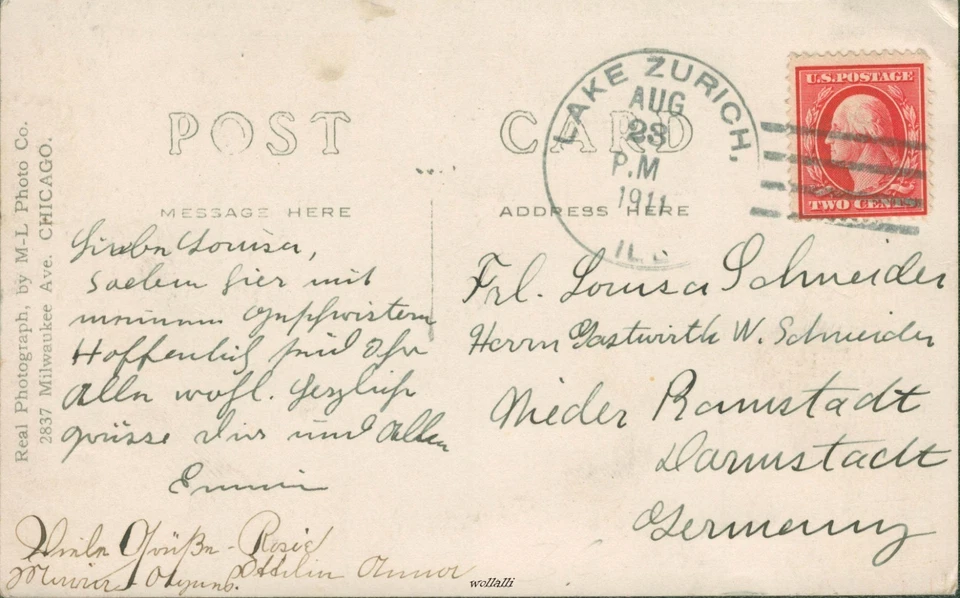 Real Photograph, by M-L Photo Co.
2837 Milwaukee Ave. CHICAGO.
POST CARD
MESSAGE HERE
ADDRESS HERE
LAKE ZURICH,
AUG
23
P.M
1911
ILL
U.S. POSTAGE
TWO CENTS
Liebe Louisa,
Soeben hier mit
meinen Geschwistern
Hoffentlich seid Ihr
Alle wohl. Herzliche
grüsse Dir und Allen
Emmi
Frl. Louisa Schneider
Herrn Gastwirth W. Schneider
Nieder Ramstadt
Darmstadt
Germany
Viele Grüße - Rosie
Ottilie
wollalli